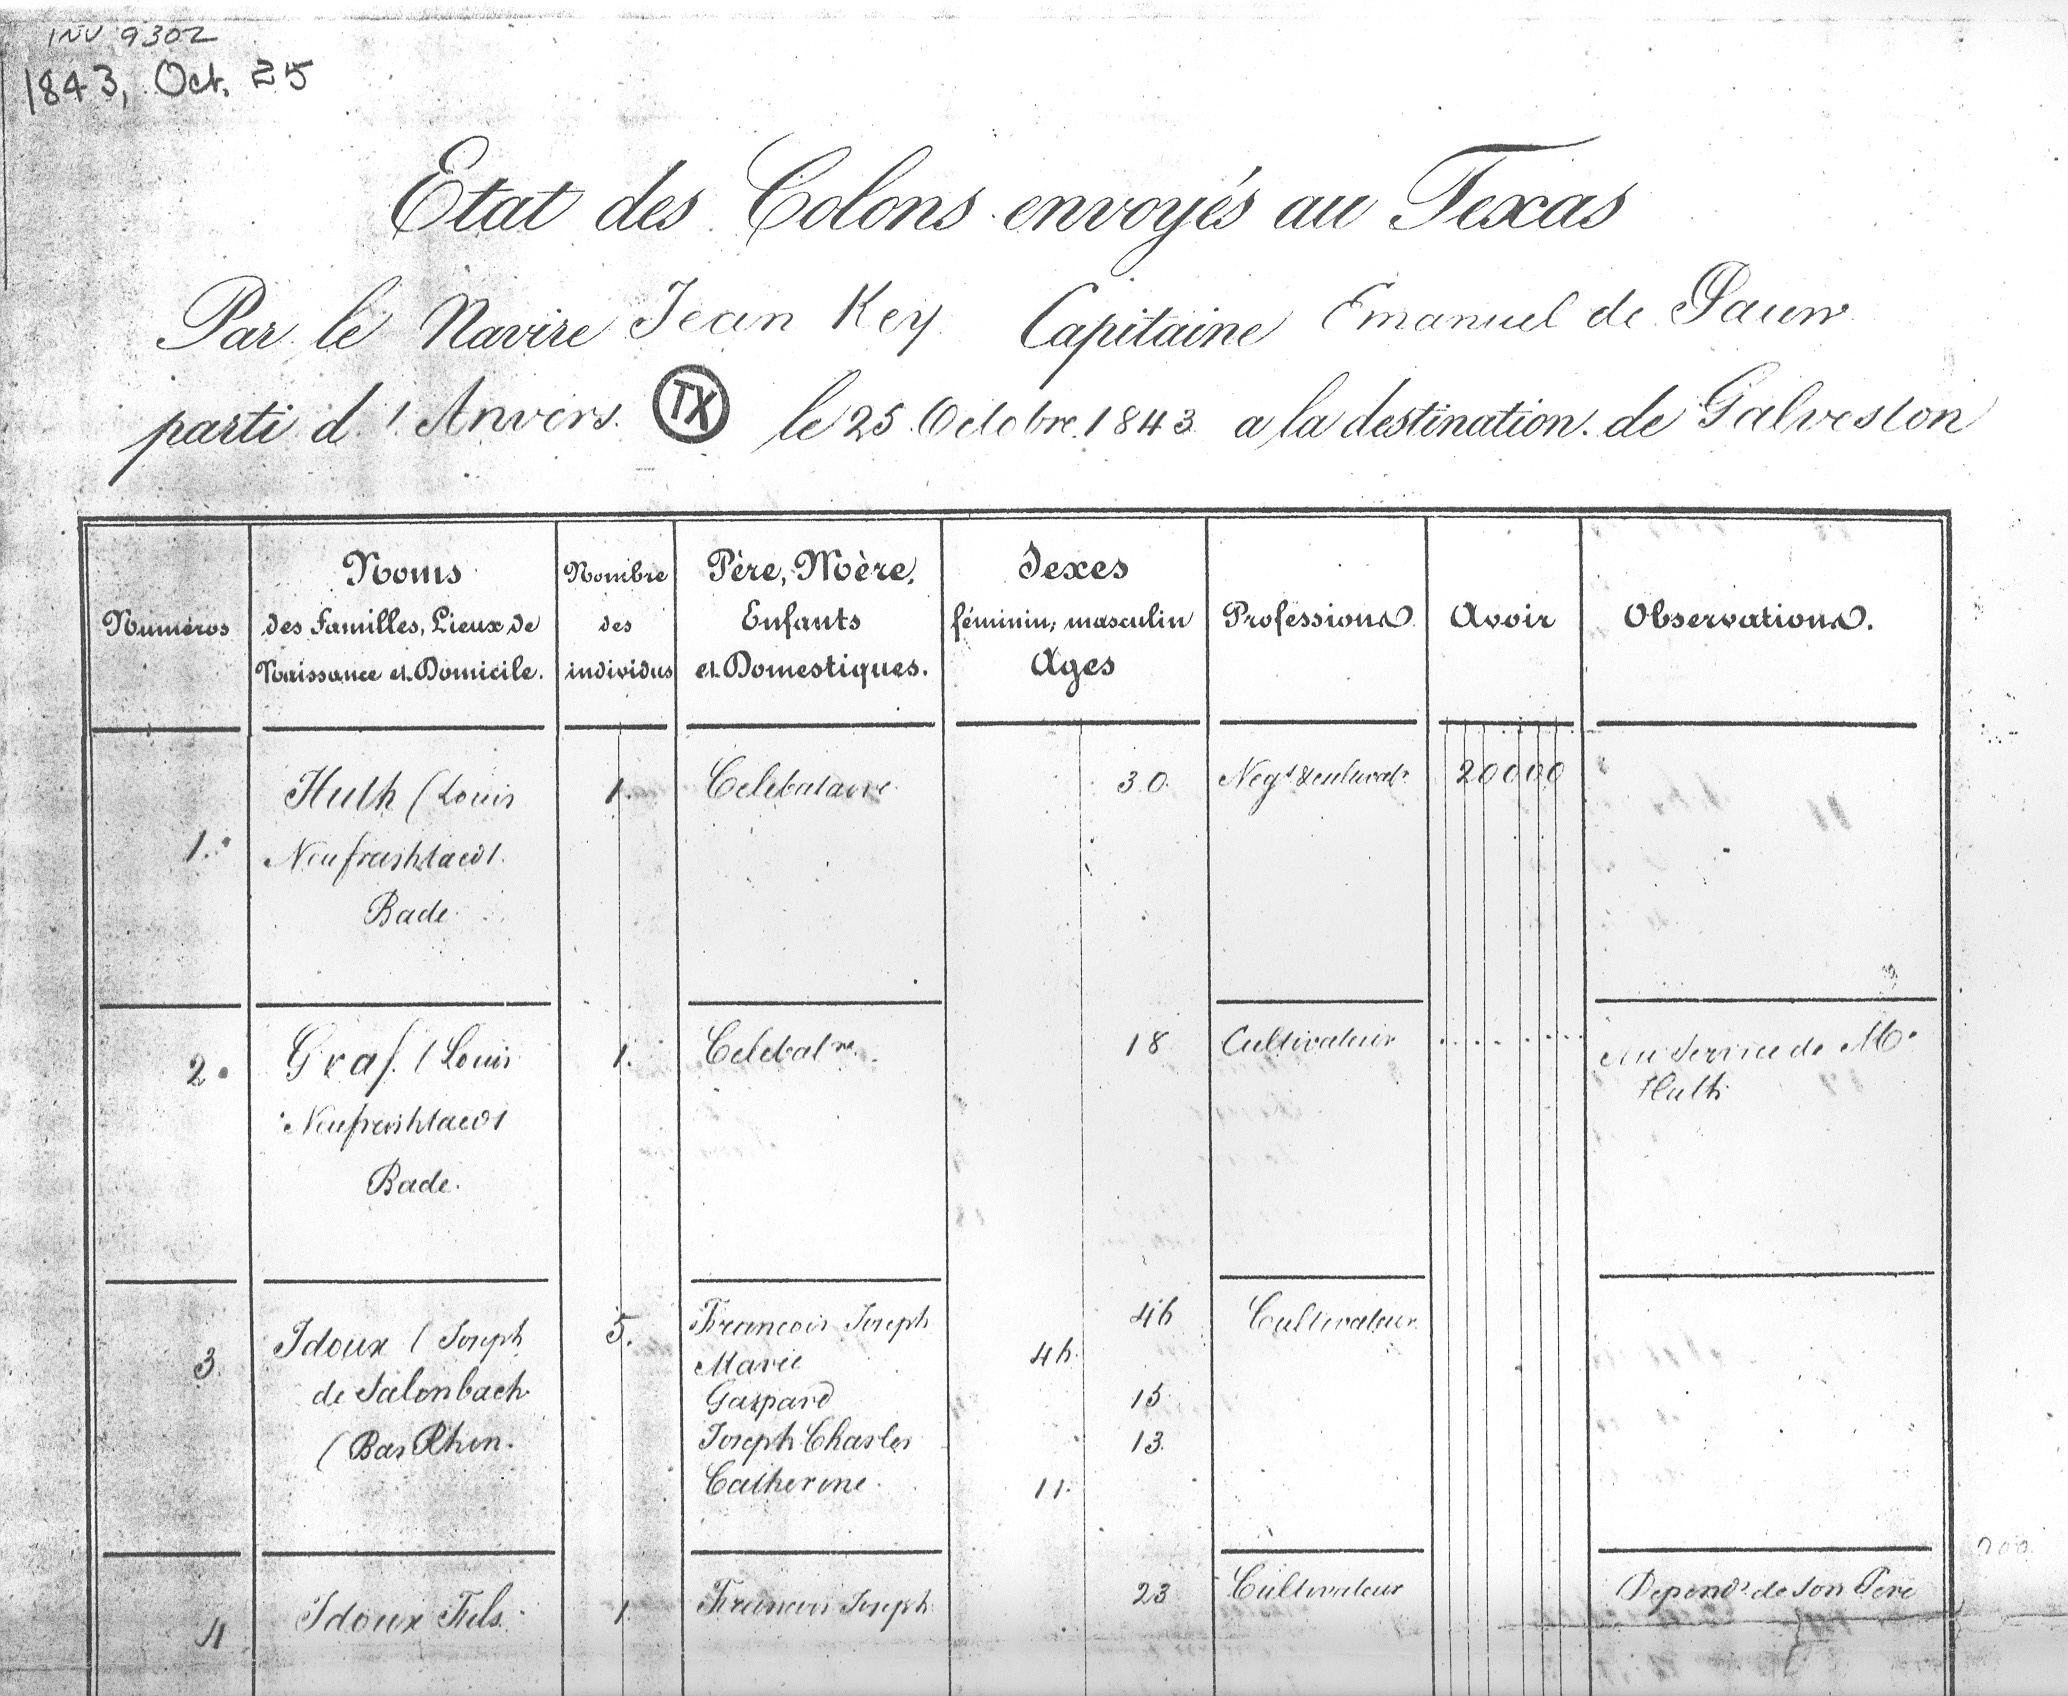 INV 9302
1843, Oct. 25
Etat des Colons envoyés au Texas
Par le Navire Jean Key Capitaine Emanuel de Pauw
parti d'Anvers. TX le 25 Octobre 1843 a la destination de Galveston
Numéros
Noms
des Familles, Lieux de
Naissance et Domicile.
Nombre
des
individus
Père, Mère,
Enfants
et Domestiques.
Sexes
féminin, masculin
Ages
Professions
Avoir
Observations.
1.
Huth (Louis
Neufreishtaedt
Bade
1.
Celebataire
30.
Negt & cultivatr
20000
2.
Graf (Louis
Neufreishtaedt
Bade.
1.
Celebatre.
18
Cultivateur
Au Service de Mr
Huth
3.
Idoux (Joseph
de Salenbach
(Bas Rhin.
5.
Francois Joseph
46
Cultivateur
Marie
46.
Gaspard
15
Joseph Charles
13.
Catherine
11.
4
Idoux Fils.
1.
Francois Joseph
23
Cultivateur
Dependt de son Pere
200